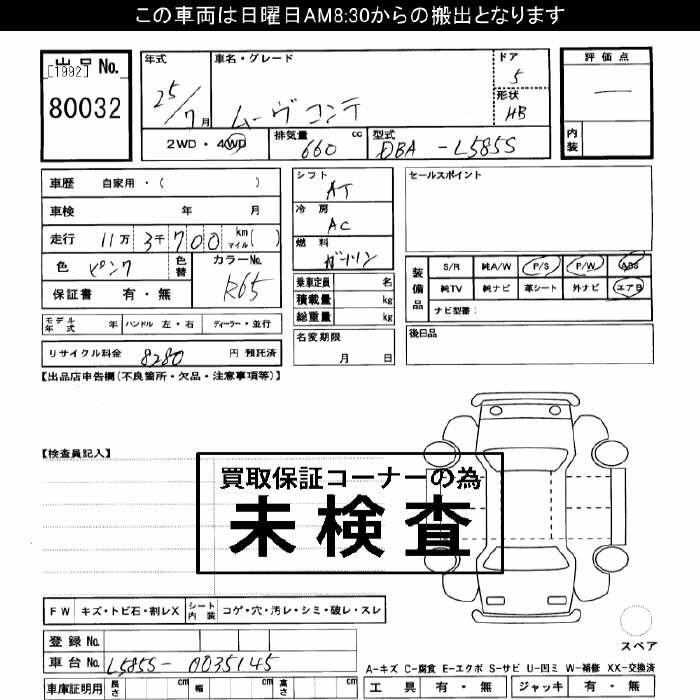 この車両は日曜日AM8:30からの搬出となります
出品No.
[1992]
80032
年式
25/7月
車名・グレード
ムーヴコンテ
ドア
5
形状
HB
2WD・4WD
排気量
660 cc
型式
DBA-L585S
評価点
ー
内装
車歴 自家用・( )
車検 年 月
走行 11万3千700 km マイル( )
色 ピンク 色替
カラーNo. R65
保証書 有・無
モデル年式 年 ハンドル 左・右 ディーラー・並行
リサイクル料金 8280 円 預託済
シフト
AT
冷房
AC
燃料
ガソリン
乗車定員 名
積載量 kg
総重量 kg
名変期限
月 日
セールスポイント
装備品
S/R 純A/W P/S P/W ABS
純TV 純ナビ 革シート 外ナビ エアB
ナビ型番:
後日品
【出品店申告欄(不良箇所・欠品・注意事項等)】
【検査員記入】
買取保証コーナーの為
未検査
FW キズ・トビ石・割レX シート内装 コゲ・穴・汚レ・シミ・破レ・スレ
登録No.
車台No. L585S-0035145
車庫証明用 長さ cm 幅 cm 高さ cm
スペア
A-キズ C-腐食 E-エクボ S-サビ U-凹ミ W-補修 XX-交換済
工具 有・無 ジャッキ 有・無